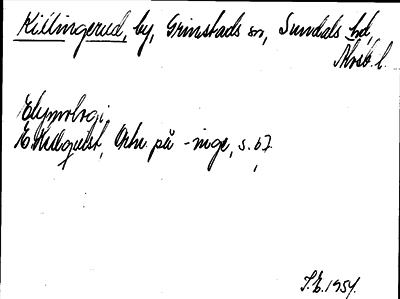 Killingerud, by, Grinstads sn, Sundals hd,
Älvsb. l.
Etymologi
E. Hellquist, Ortn. på -inge, s. 67
S.E. 1954.